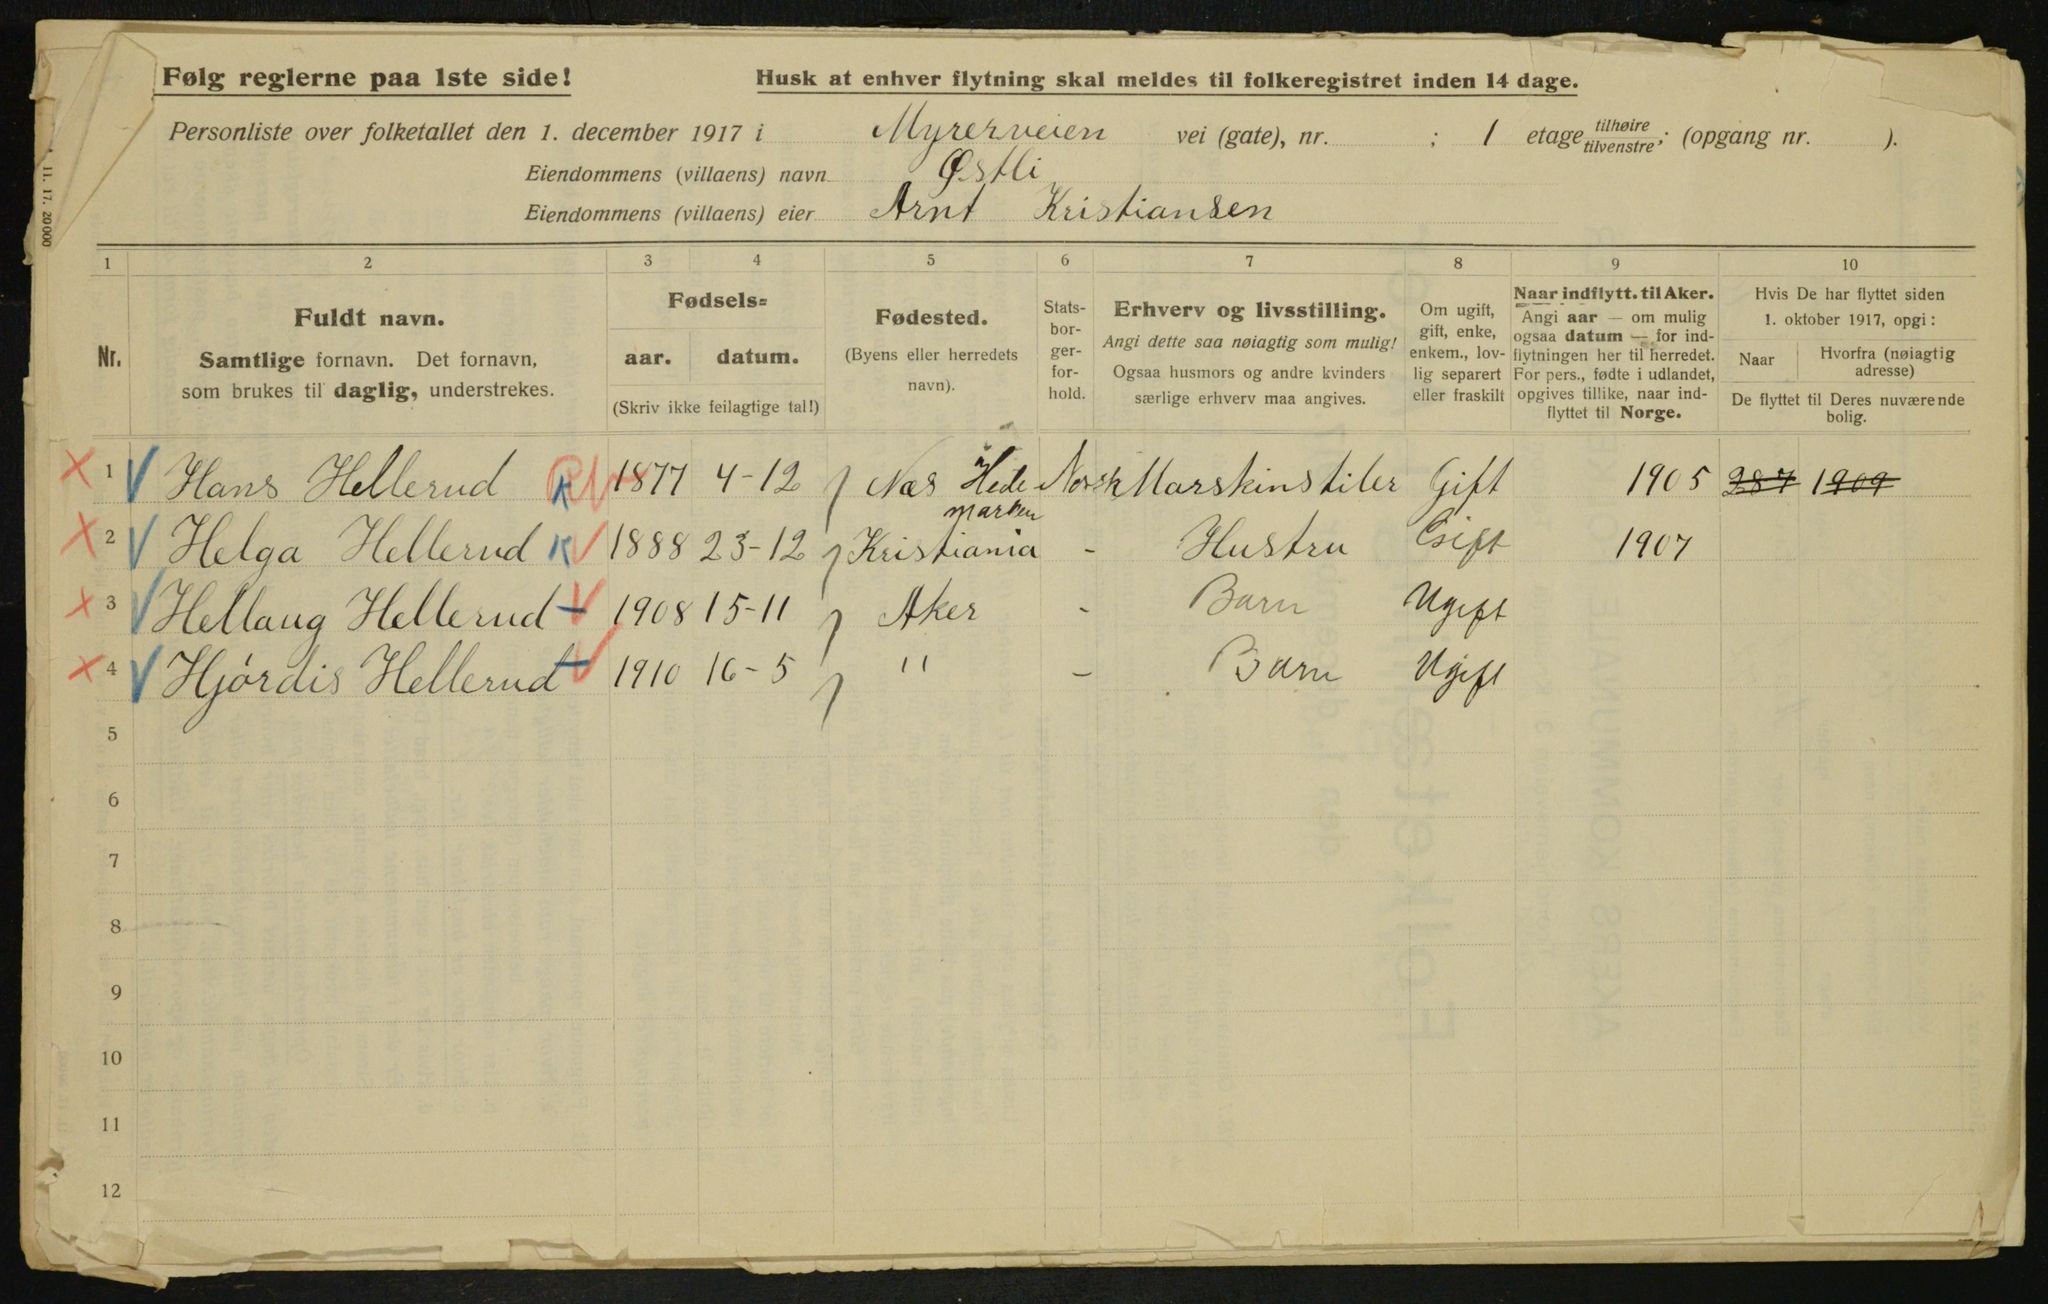 Følg reglerne paa 1ste side!
Husk at enhver flytning skal meldes til folkeregistret inden 14 dage.
Personliste over folketallet den 1. december 1917 i Myrerveien vei (gate), nr. ; 1 etage tilhøire tilvenstre; (opgang nr. ).
Eiendommens (villaens) navn Østli
Eiendommens (villaens) eier Arnt Kristiansen
11. 17. 20000
1 2 3 4 5 6 7 8 9 10
Nr.
Fuldt navn.
Samtlige fornavn. Det fornavn,
som brukes til daglig, understrekes.
Fødsels-
aar. datum.
(Skriv ikke feilagtige tal!)
Fødested.
(Byens eller herredets
navn).
Stats-
bor-
ger-
for-
hold.
Erhverv og livsstilling.
Angi dette saa nøiagtig som mulig!
Ogsaa husmors og andre kvinders
særlige erhverv maa angives.
Om ugift,
gift, enke,
enkem., lov-
lig separert
eller fraskilt
Naar indflytt. til Aker.
Angi aar — om mulig
ogsaa datum — for ind-
flytningen her til herredet.
For pers., fødte i udlandet,
opgives tillike, naar ind-
flyttet til Norge.
Hvis De har flyttet siden
1. oktober 1917, opgi:
Naar Hvorfra (nøiagtig
adresse)
De flyttet til Deres nuværende
bolig.
1 Hans Hellerud 1877 4-12 Næs Hede Norsk Marskinstiler Gift 1905 287 1909
marken
2 Helga Hellerud 1888 23-12 Kristiania - Hustru Gift 1907
3 Hellaug Hellerud 1908 15-11 Aker - Barn Ugift
4 Hjórdis Hellerud 1910 16-5 " - Barn Ugift
5
6
7
8
9
10
11
12